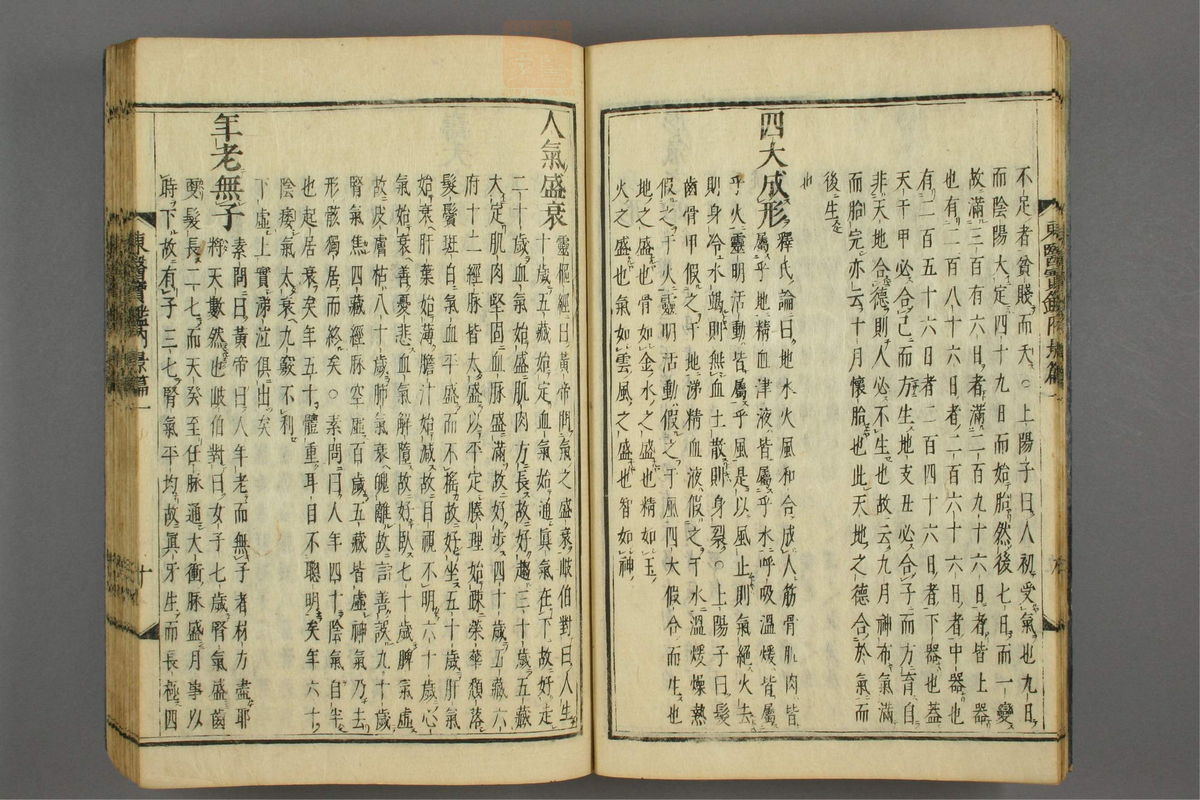 不足者貧賤而夭○上陽子曰人初受氣也九日
而陰陽大定四十九日而始胎然後七日而一變
故滿三百有六日者滿二百九十六日者皆上器
也有二百八十六日者二百六十六日者中器也
有二百五十六日者二百四十六日者下器也蓋
天干甲必合己而方生地支丑必合子而方育自
非天地合德則人必不生也故云九月神布氣滿
而胎完亦云十月懷胎也此天地之德合於氣而
後生
也
四大成形
釋氏論曰地水火風和合成人筋骨肌肉皆
屬乎地精血津液皆屬乎水呼吸溫煖皆屬
乎火靈明活動皆屬乎風是以風止則氣絕火去
則身冷水竭則無血土散則身裂○上陽子曰髮
齒骨甲假之于地涕精血液假之于水溫煖燥熱
假之于火靈明活動假之于風四大假合而生也
地之盛也骨如金水之盛也精如玉
火之盛也氣如雲風之盛也智如神
人氣盛衰
靈樞經曰黃帝問氣之盛衰歧伯對曰人生
十歲五藏始定血氣始通眞氣在下故好走
二十歲血氣始盛肌肉方長故好趨三十歲五藏
大定肌肉堅固血脈盛滿故好步四十歲五藏六
府十二經脈皆太盛以平定腠理始踈榮華頹落
髮鬢斑白氣血平盛而不搖故好坐五十歲肝氣
始衰肝葉始薄膽汁始減故目視不明六十歲心
氣始衰善憂悲血氣解墮故好臥七十歲脾氣虛
故皮膚枯八十歲肺氣衰魄離故言善誤九十歲
腎氣焦四藏經脈空虛百歲五藏皆虛神氣乃去
形骸獨居而終矣○素問曰人年四十陰氣自半
也起居衰矣年五十體重耳目不聰明矣年六十
陰痿氣太衰九竅不利
下虛上實涕泣俱出矣
年老無子
素問曰黃帝曰人年老而無子者材力盡耶
將天數然也歧伯對曰女子七歲腎氣盛齒
更髮長二七而天癸至任脈通大衝脈盛月事以
時下故有子三七腎氣平均故眞牙生而長極四
東醫寶鑑內景篇一
十